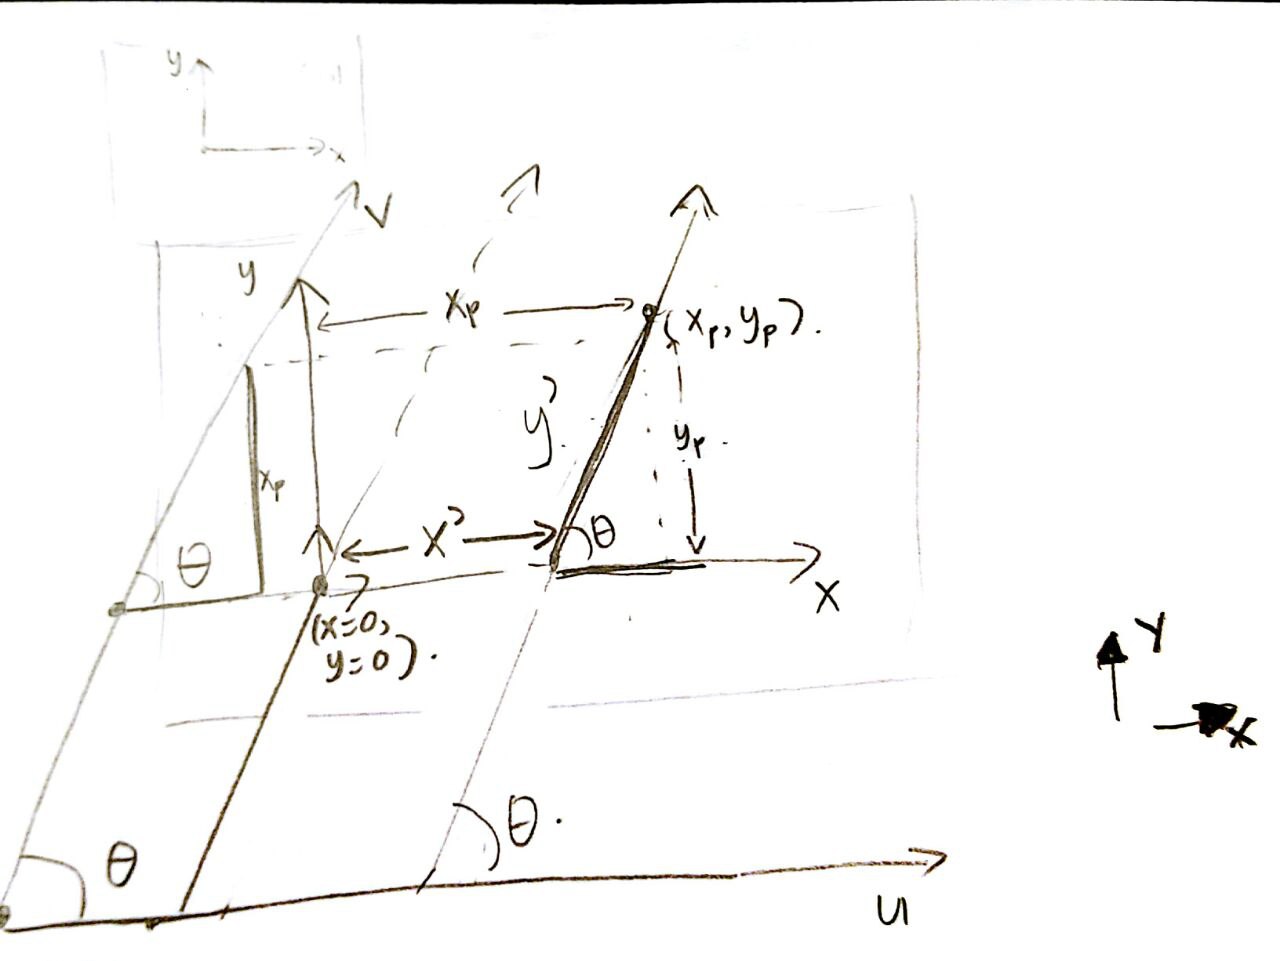 y
x
V
y
xp
(xp, yp).
y'
yp.
xp
x'
θ
θ
x
(x=0,
y=0).
Y
X
θ
θ.
u